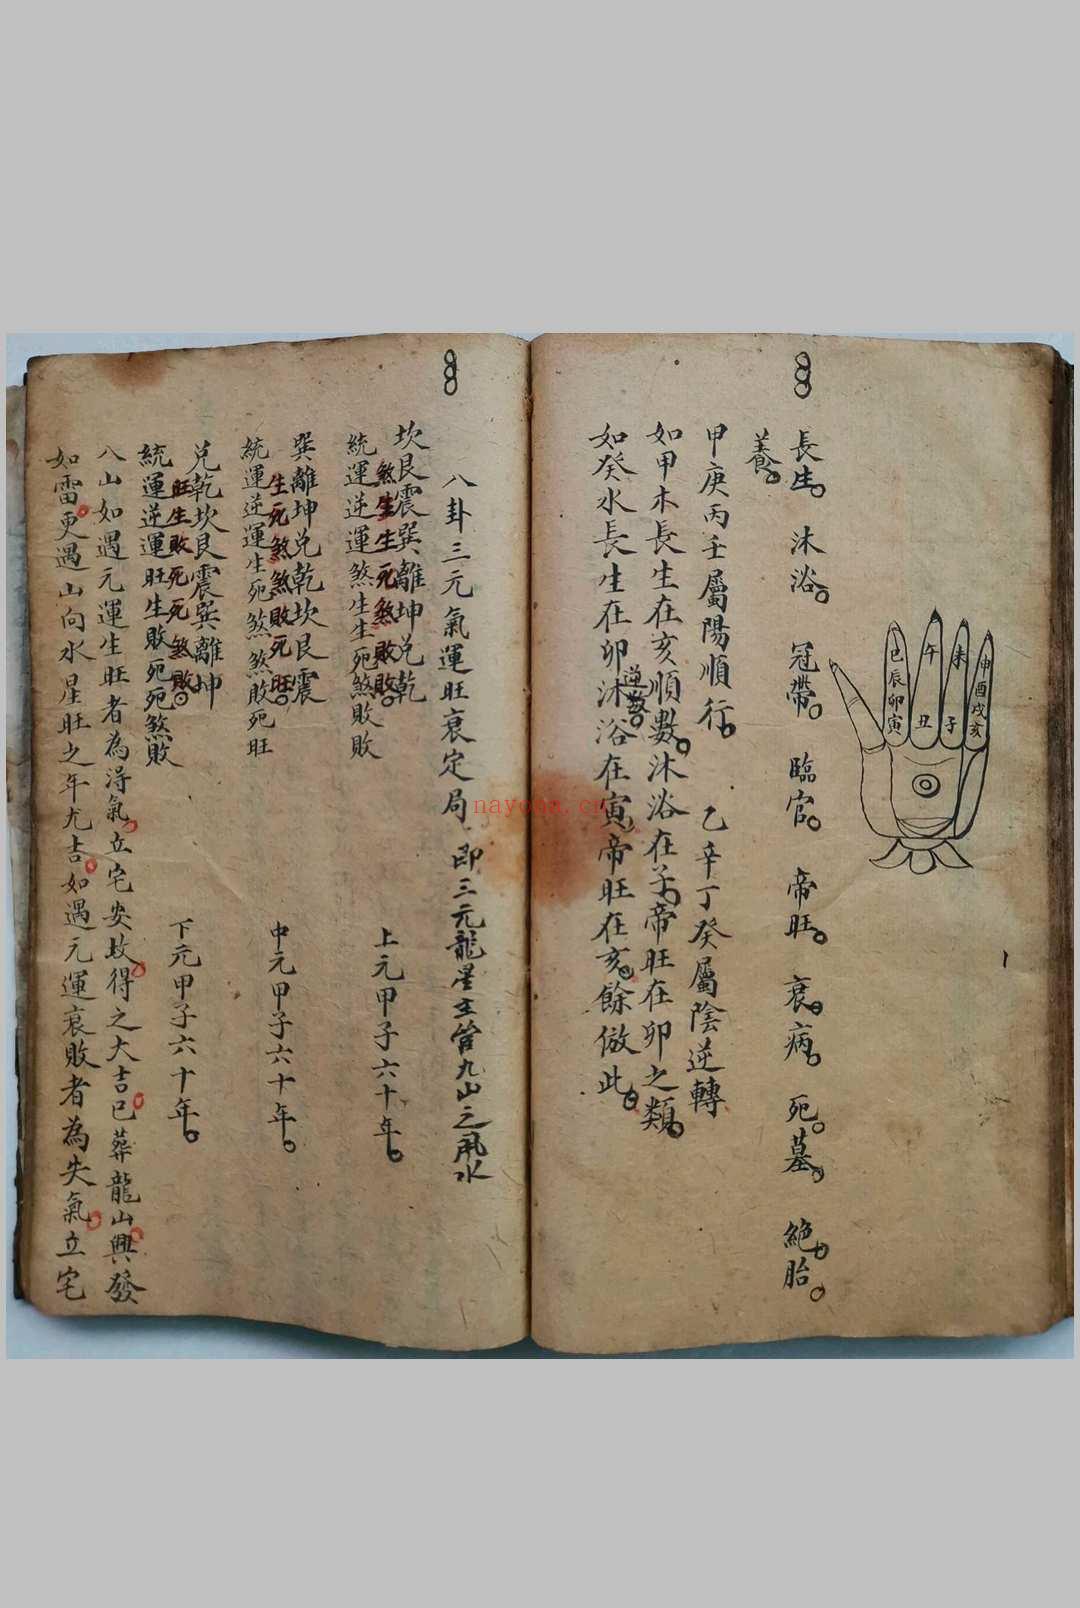 申酉戌亥
未
子
午
丑
巳辰卯寅
長生 沐浴 冠帶 臨官 帝旺 衰 病 死 墓 絕 胎
養
甲庚丙壬屬陽順行 乙辛丁癸屬陰逆轉
如甲木長生在亥順數沐浴在子帝旺在卯之類
逆數
如癸水長生在卯沐浴在寅帝旺在亥餘倣此
八卦三元氣運旺衰定局 即三元龍星主管九山之風水
坎艮震巽離坤兌乾
煞生生死煞敗敗
統運逆運煞生生死煞敗敗
上元甲子六十年
巽離坤兌乾坎艮震
生死煞煞敗死旺
統運逆運生死煞煞敗死旺
中元甲子六十年
兌乾坎艮震巽離坤
旺生敗死死煞敗
統運逆運旺生敗死死煞敗
下元甲子六十年
八山如遇元運生旺者為得氣立宅安坟得之大吉已葬龍山興發
如雷更遇山向水星旺之年尤吉如遇元運衰敗者為失氣立宅
nayona.cn